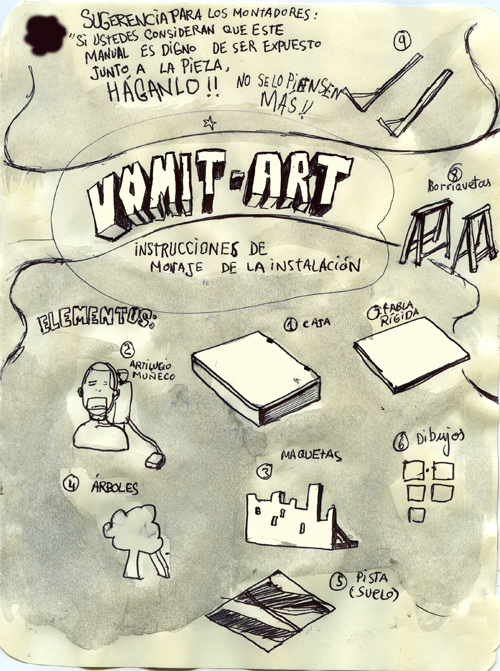 SUGERENCIA PARA LOS MONTADORES:
"SI USTEDES CONSIDERAN QUE ESTE
MANUAL ES DIGNO DE SER EXPUESTO
JUNTO A LA PIEZA,
HÁGANLO!! NO SE LO PIENSEN
MÁS!!
9
VOMIT-ART
INSTRUCCIONES DE
MOTAJE DE LA INSTALACIÓN
8
Borriquetas
ELEMENTOS:
1 CAJA
7 TABLA
RÍGIDA
2
ARTILUGIO
MUÑECO
6 Dibujos
3 MAQUETAS
4 ÁRBOLES
5 PISTA
(SUELO)